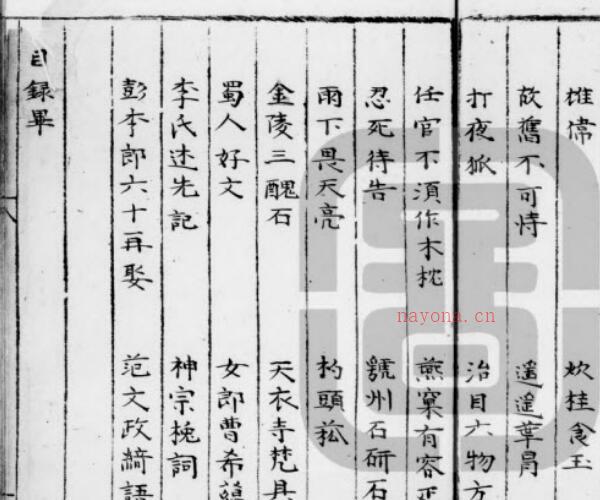 雄儜 炊桂食玉
故舊不可恃 遥遥華胄
打夜狐 治目六物方
任官不須作木枕 燕窠有容正
忍死待告 虢州石研石
雨下畏天亮 杓頭菘
金陵三醜石 天衣寺梵具
蜀人好文 女郎曹希藴
李氏述先記 神宗挽詞
彭李郎六十再娶 范文政綺語
目録畢
nayona.cn